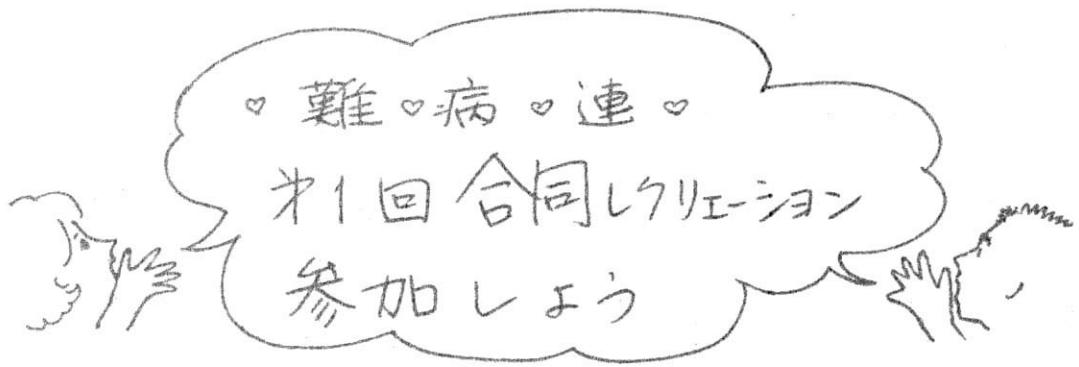 ♡難♡病♡連♡
才1回 合同レクリエーション
参加しよう